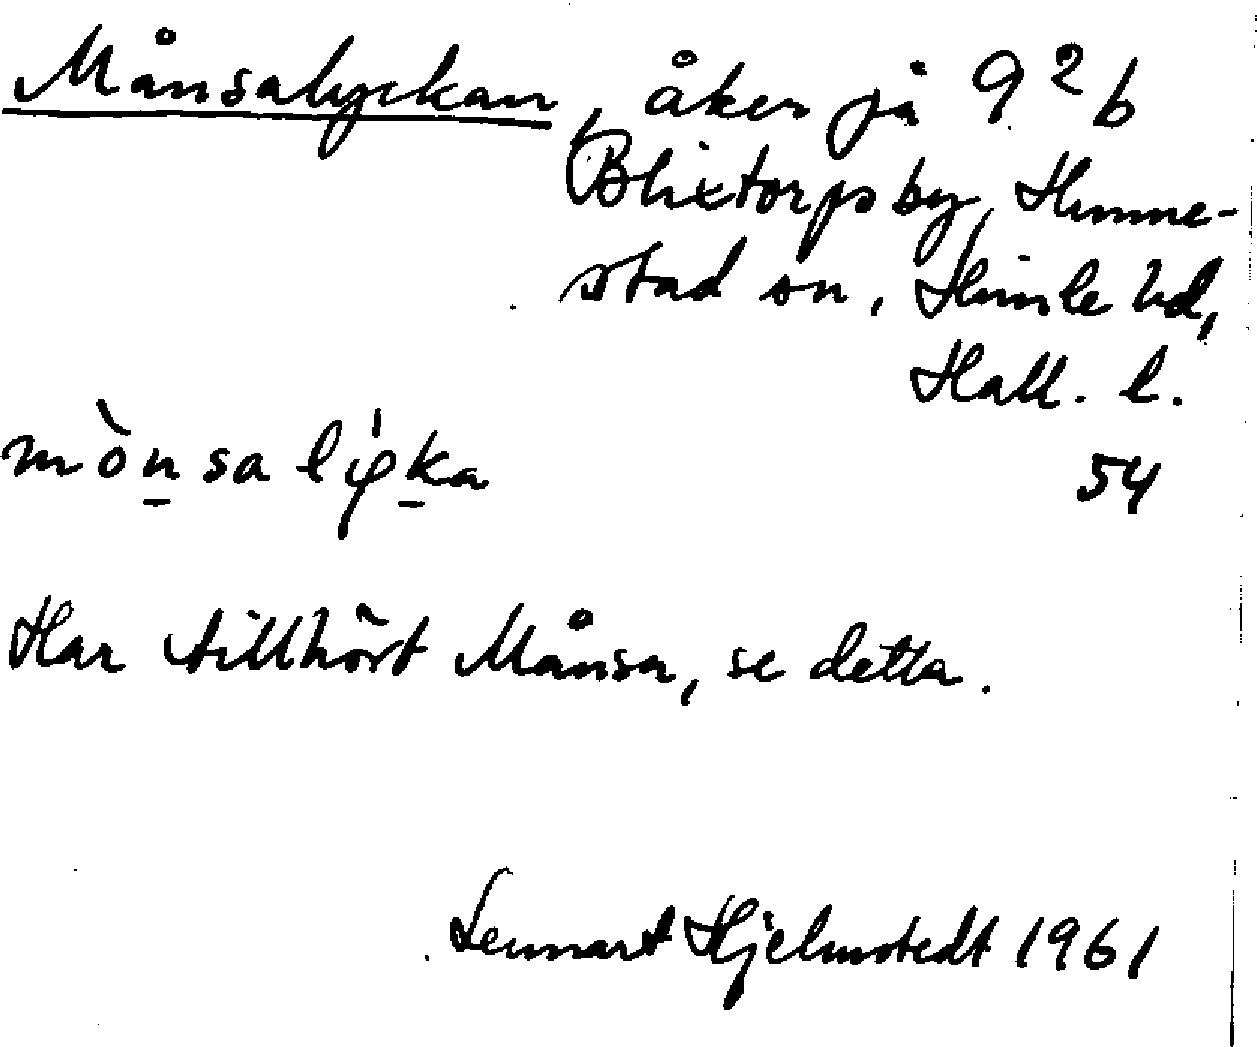 Månsalyckan, åker på 9² b
Blixtorps by, Hunne-
stad sn, Himle hd,
Hall. l.
mò̱nsa lyḵa 54
Har tillhört Månsa, se detta.
Lennart Hjelmstedt 1961